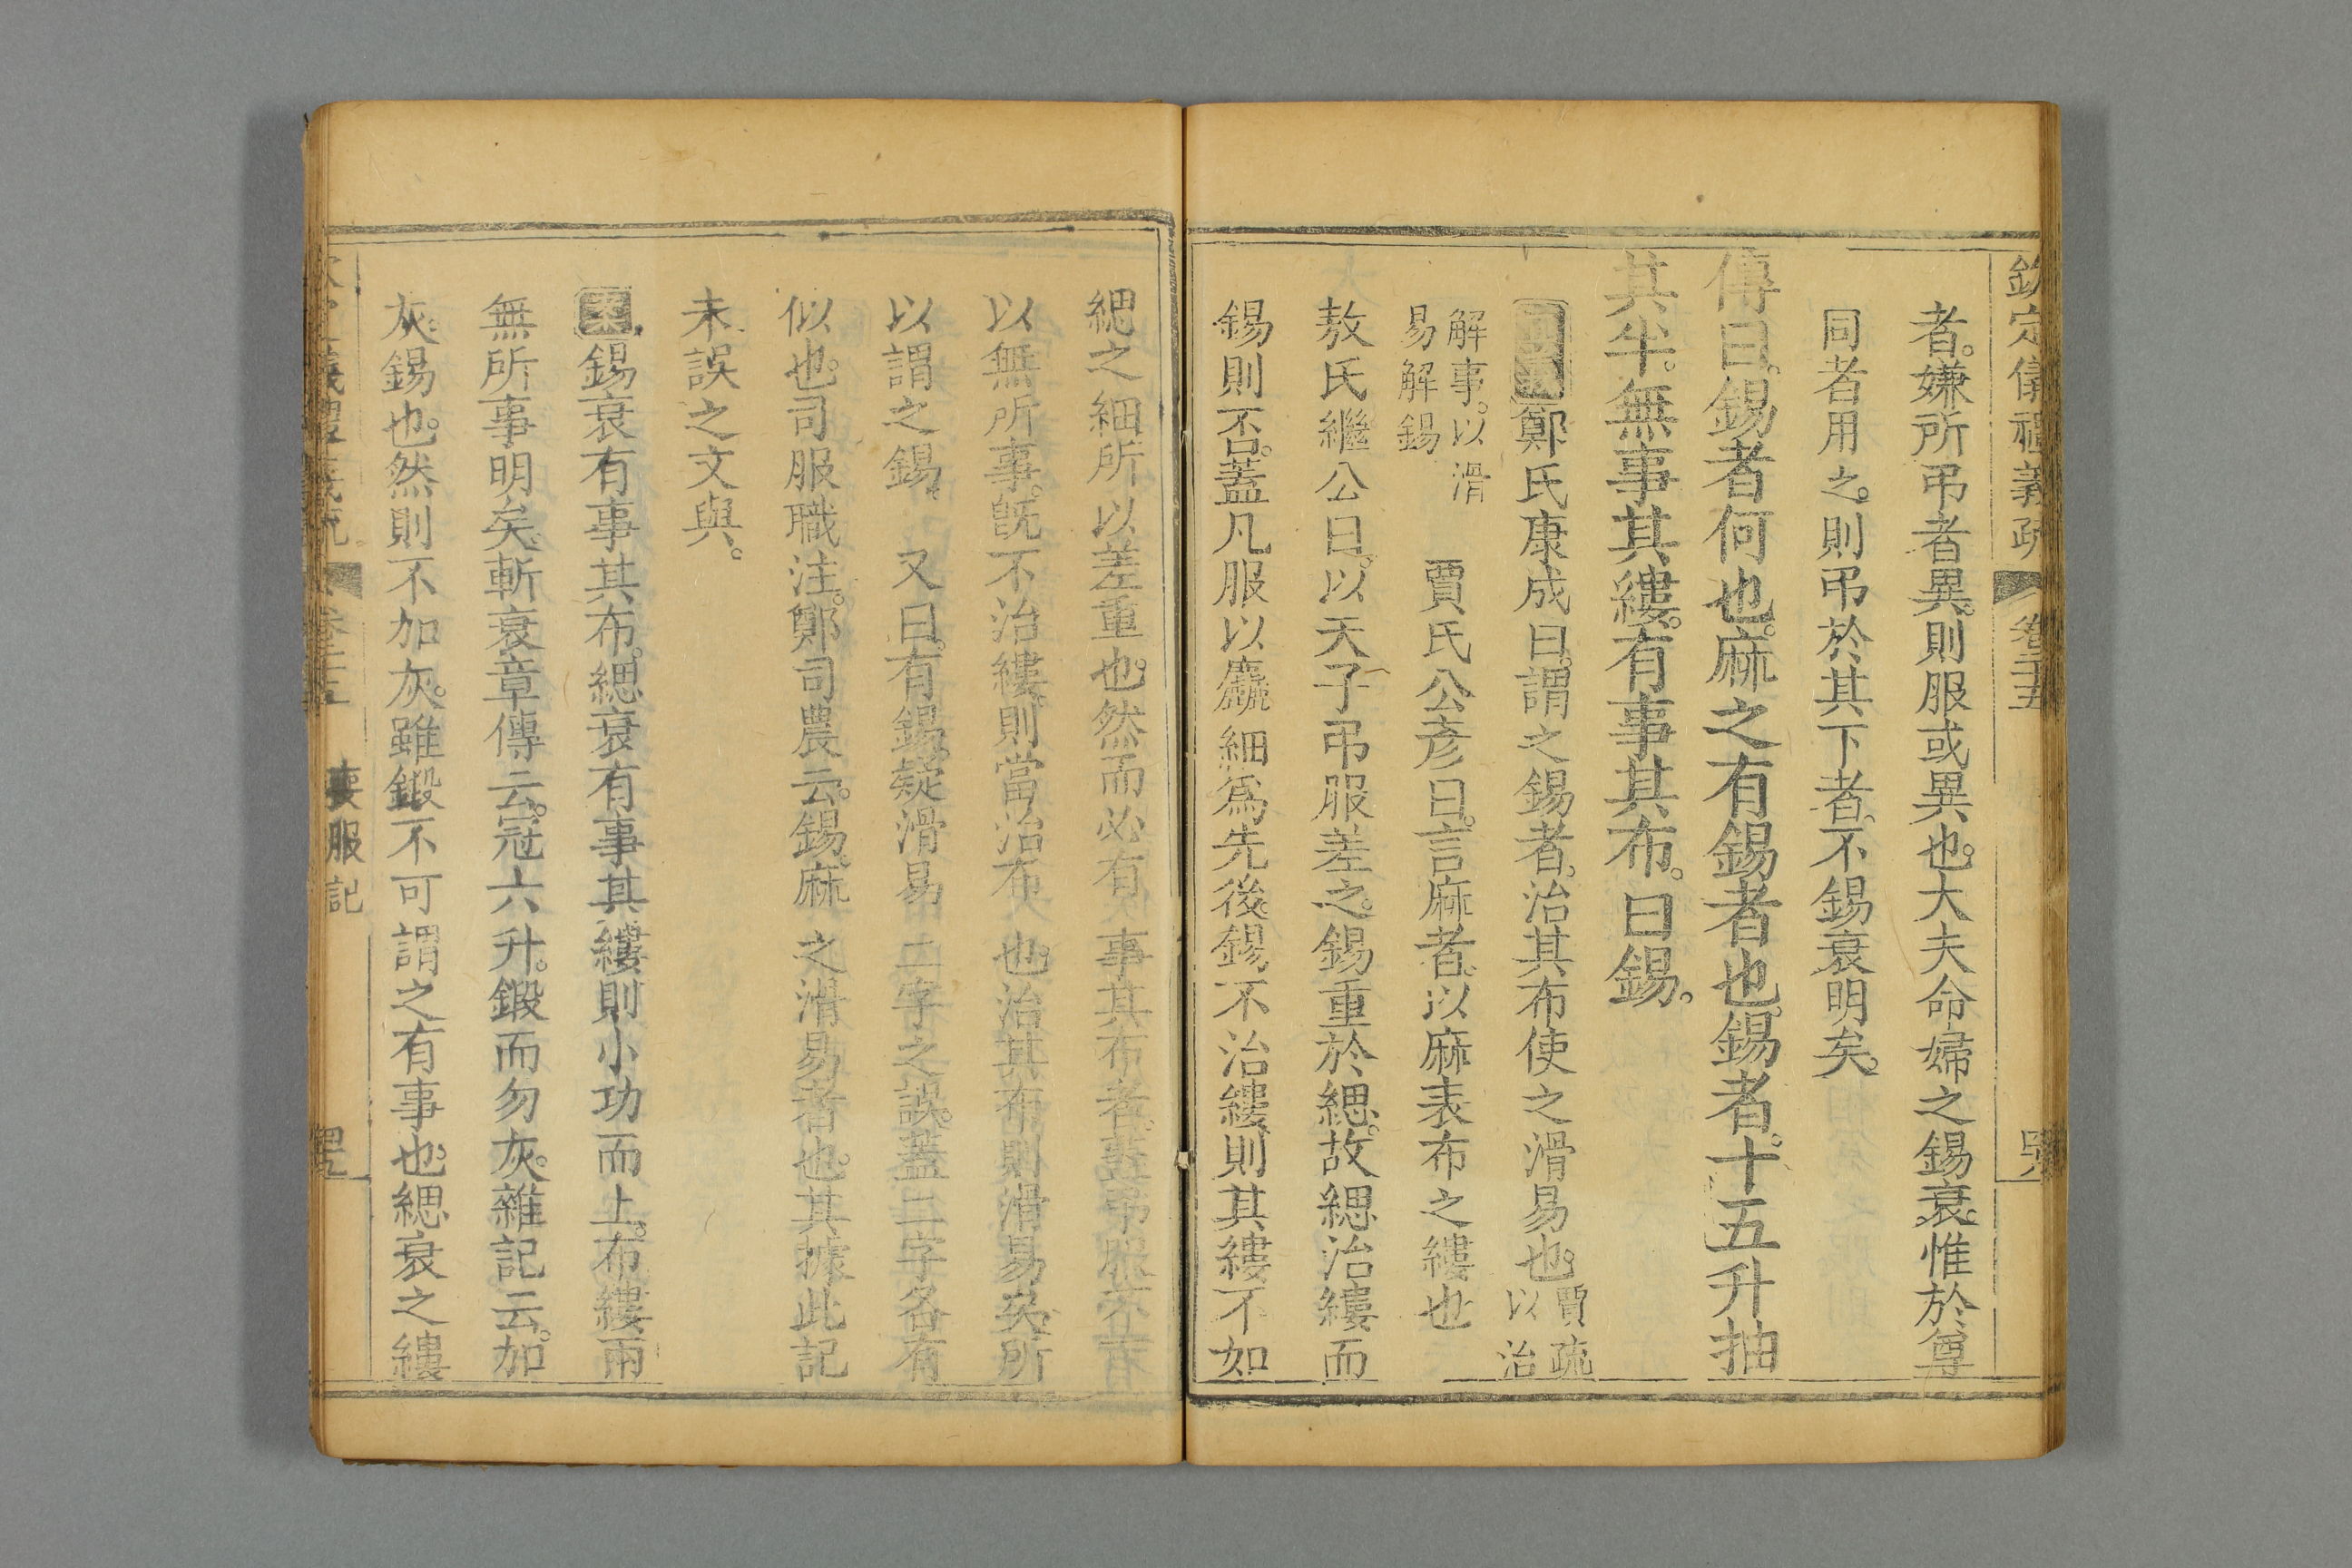 欽定儀禮義疏 卷二十五
者。嫌所弔者異。則服或異也。大夫命婦之錫衰。惟於尊
同者用之。則弔於其下者。不錫衰明矣。
傳曰。錫者何也。麻之有錫者也。錫者。十五升抽
其半。無事其縷。有事其布。曰錫。
鄭氏康成曰。謂之錫者。治其布使之滑易也。賈疏以治
解事。以滑易解錫 賈氏公彥曰。言麻者。以麻表布之縷也
敖氏繼公曰。以天子弔服差之。錫重於緦。故緦治縷而
錫則否。蓋凡服以麤細爲先後。錫不治縷。則其縷不如
緦之細。所以差重也。然而必有事其布者。蓋弔服不可
以無所事。旣不治縷。則當治布也。治其布則滑易矣。所
以謂之錫。 又曰。有錫。疑滑易二字之誤。蓋二字各有
似也。司服職注。鄭司農云。錫。麻之滑易者也。其據此記
未誤之文與。
案。錫衰有事其布。緦衰有事其縷。則小功而上。布縷兩
無所事明矣。斬衰章傳云。冠六升。鍛而勿灰。雜記云。加
灰。錫也。然則不加灰。雖鍛不可謂之有事也。緦衰之縷
喪服記